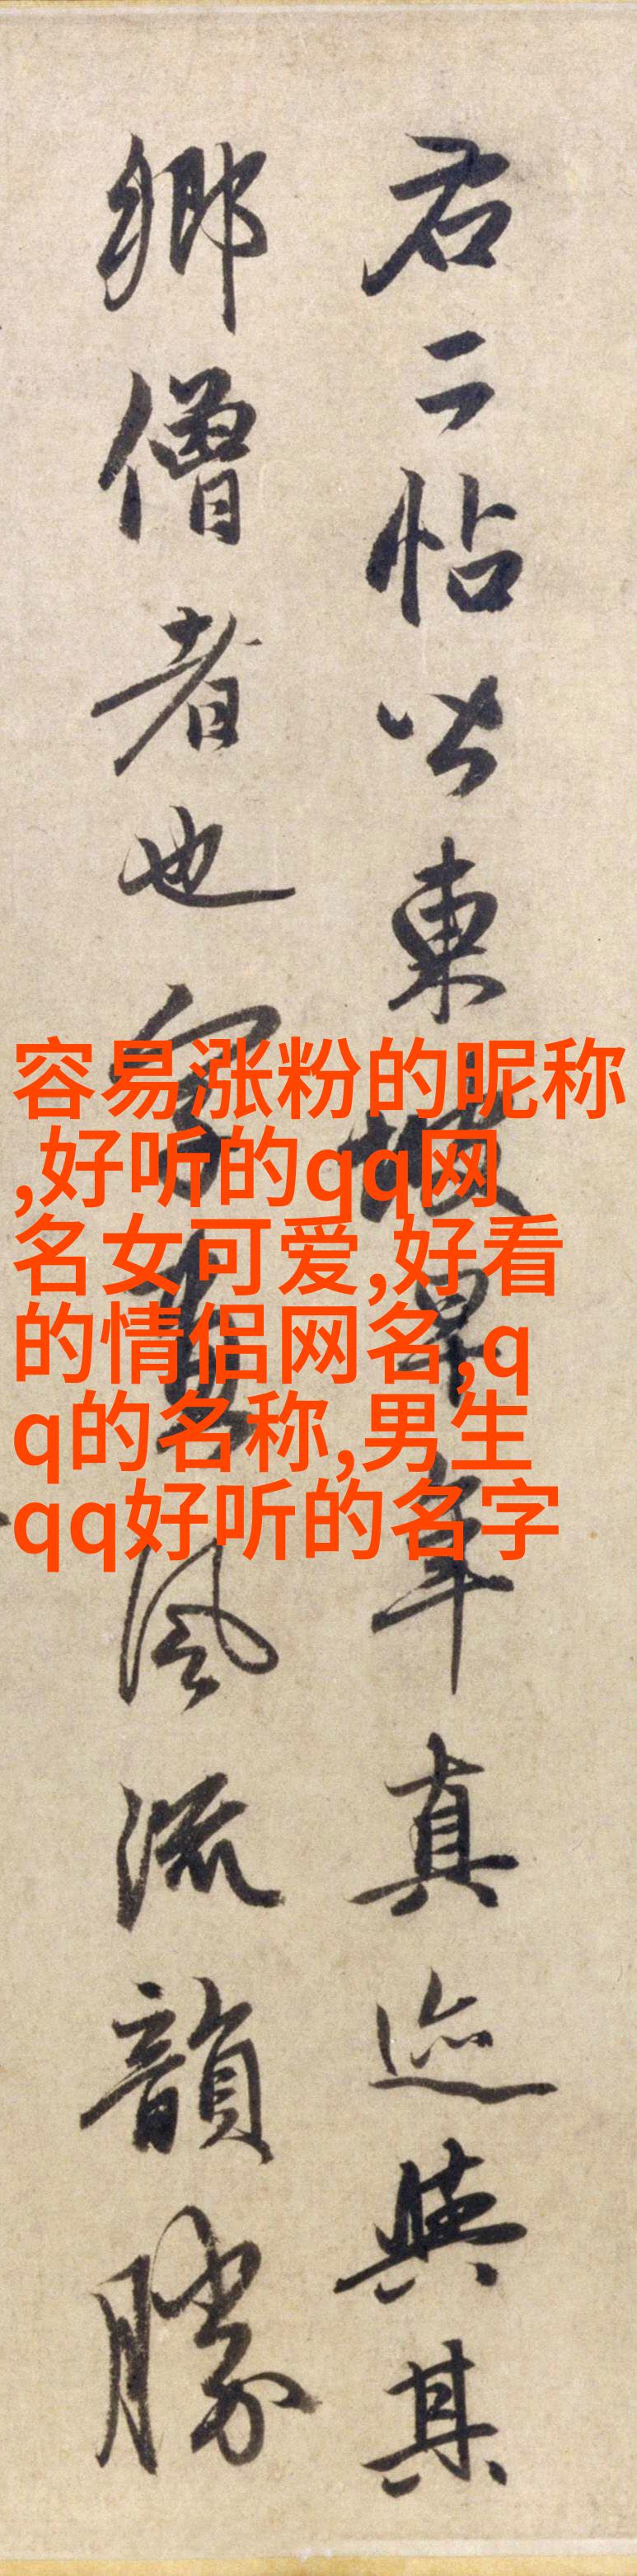 右二帖皆東坡早年真迹與其
鄉僧者也字畫風流韻勝
容易涨粉的昵称
,好听的qq网
名女可爱,好看
的情侣网名,q
q的名称,男生
qq好听的名字